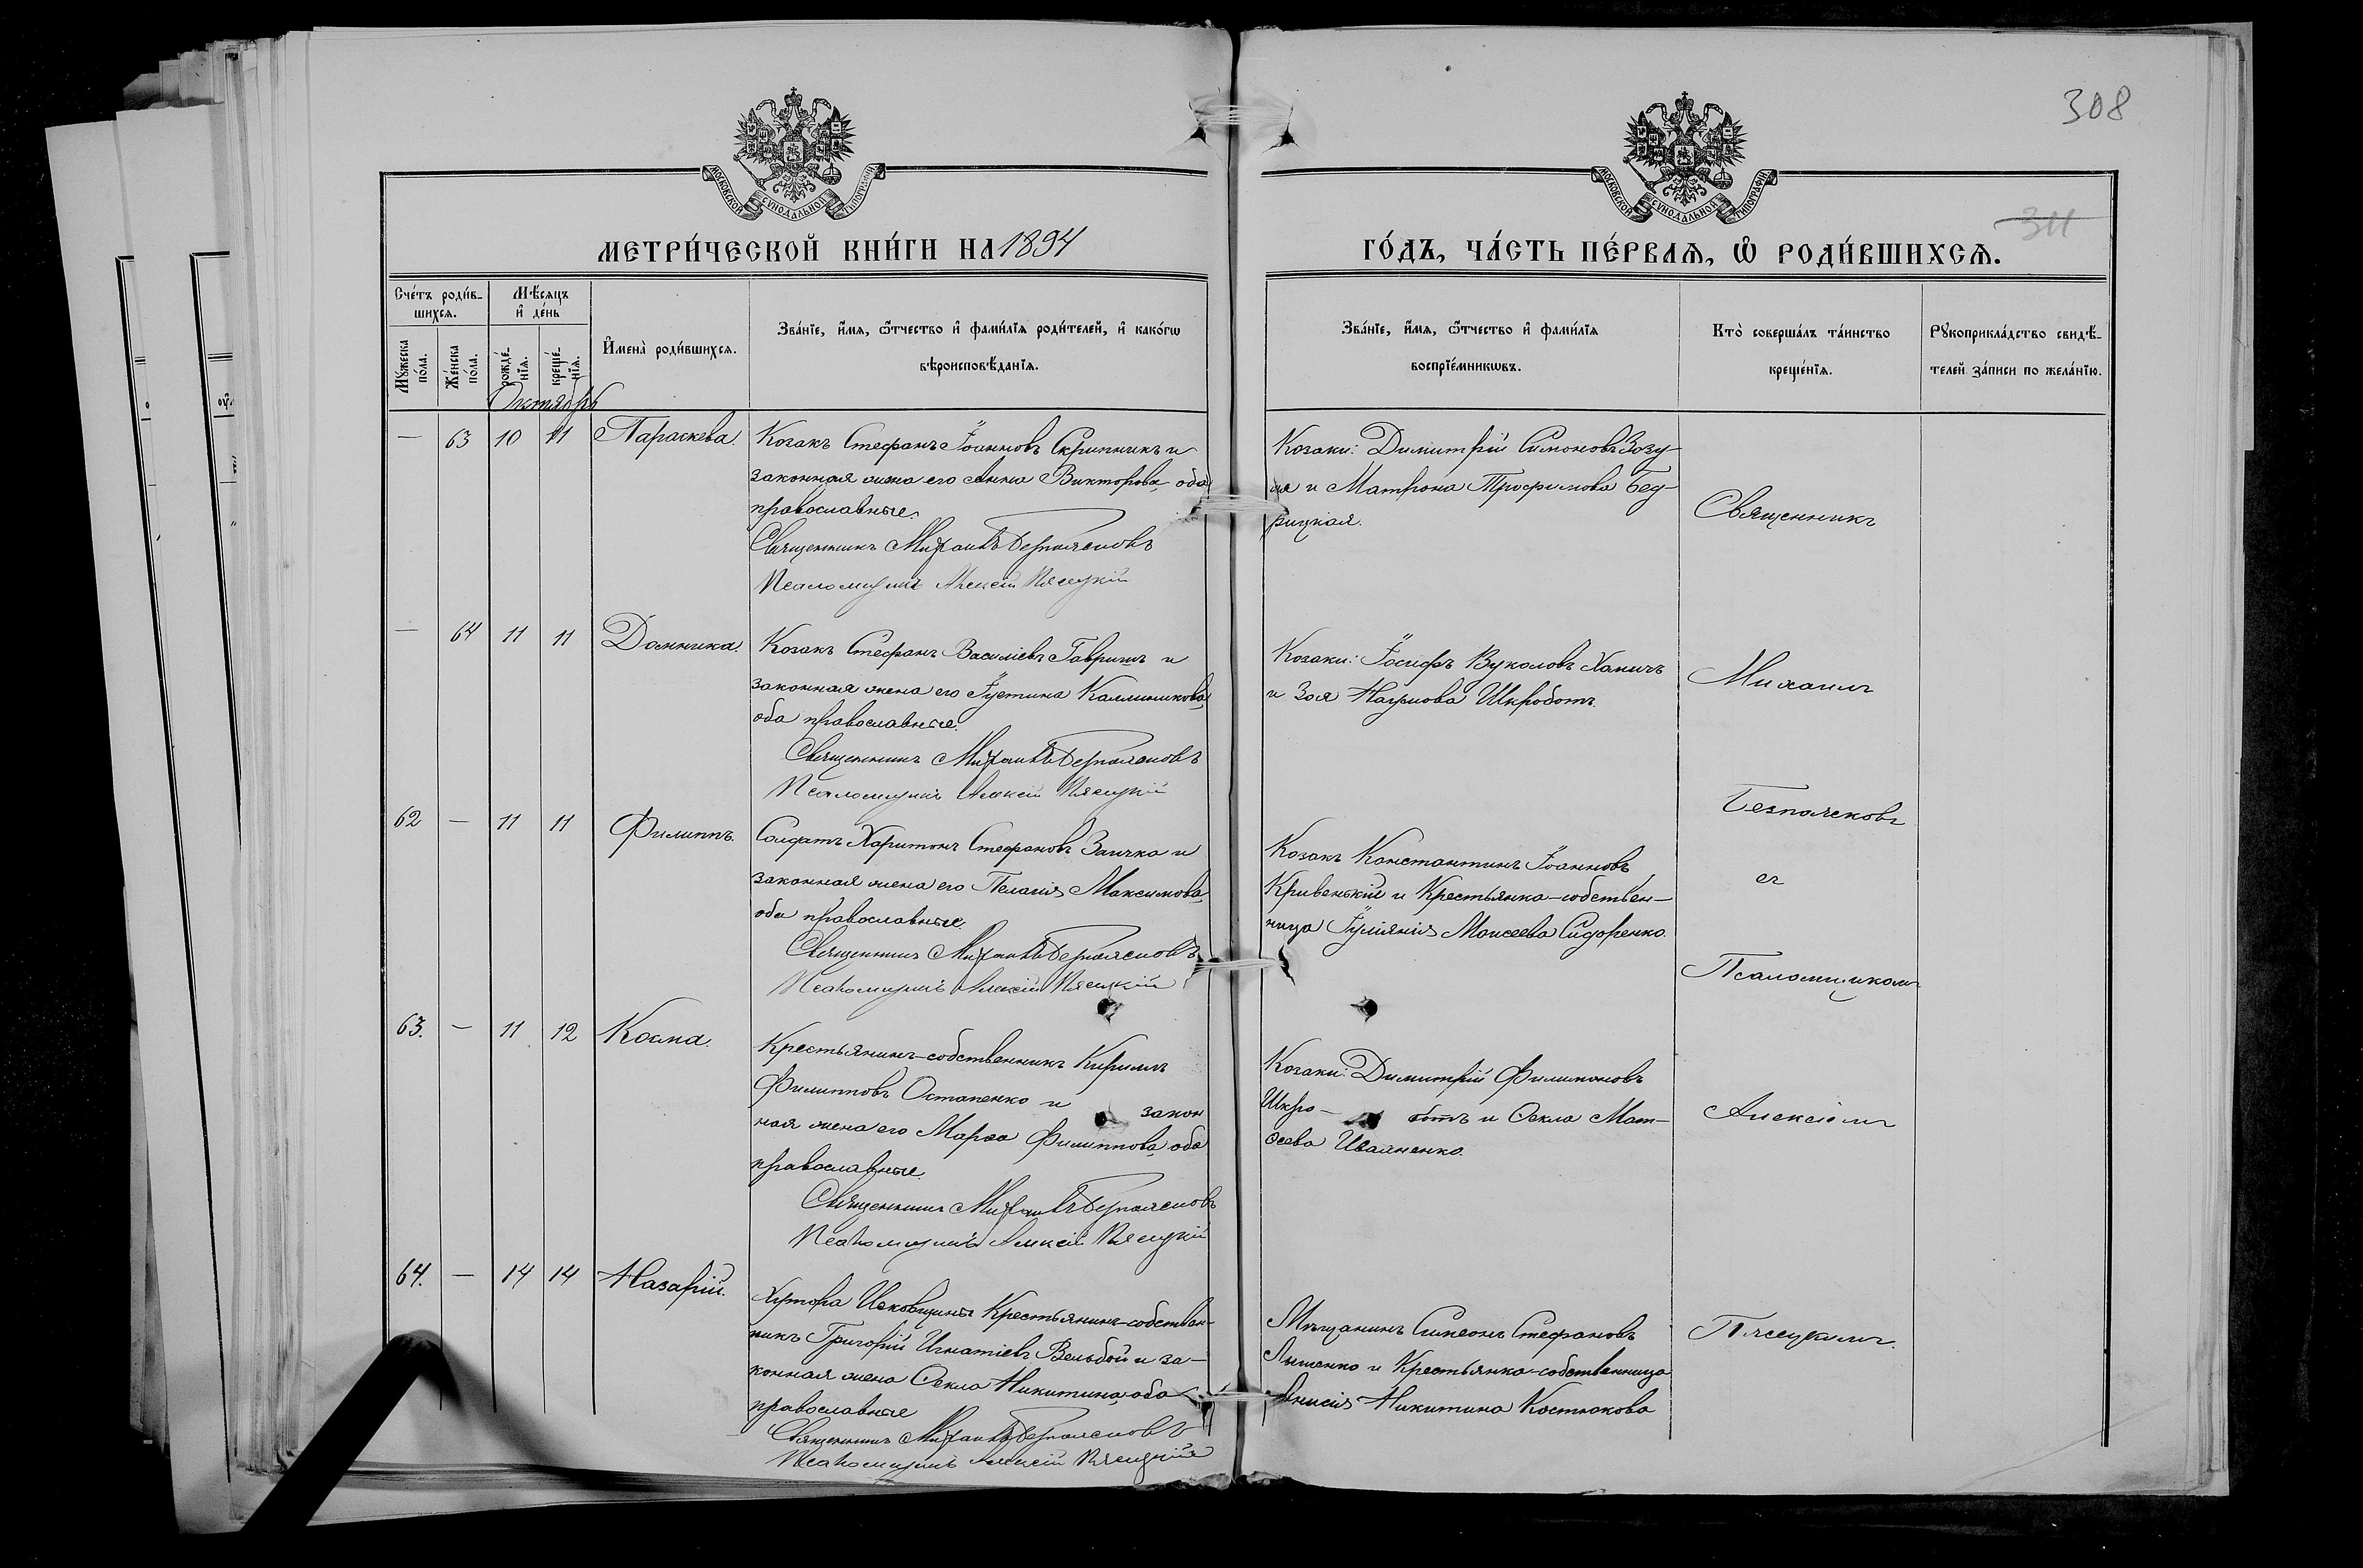 308
311
МОСКОВСКОЙ СѴНОДАЛЬНОЙ ТИПОГРАФІИ
МОСКОВСКОЙ СѴНОДАЛЬНОЙ ТИПОГРАФІИ
МЕТРИ́ЧЕСКОЙ КНИ́ГИ НА 1894
ГО́ДЪ, ЧА́СТЬ ПЕ́РВАѦ, Ѡ РОДИ́ВШИХСѦ.
Сче́тъ роди́в-
шихсѧ.
Мѣ́сѧцъ
и де́нь
Мꙋ́жеска по́ла.
Же́нска по́ла.
рожде́-нїѧ.
креще́-нїѧ.
Имена̀ роди́вшихсѧ.
Зва́нїе, и́мѧ, ѻ́тчество и фами́лїѧ роди́телей, и како́гѡ
вѣроисповѣ́данїѧ.
Зва́нїе, и́мѧ, ѻ́тчество и фами́лїѧ
воспрїе́мникѡвъ.
Кто̀ соверша́лъ та́инство
креще́нїѧ.
Рꙋкоприкла́дство свидѣ́-
телей за́писи по жела́нїю.
Октябрь
— 63 10 11 Параскева.
Козакъ Стефанъ Іоанновъ Скрипникъ и
законная жена его Анна Викторова, оба
православные.
Священникъ Михаилъ Безпоясковъ
Псаломщикъ Алексій Пясецкій
Козаки: Димитрій Симоновъ Зозу-
ля и Матрона Трофимова Бед-
рицкая.
Священникъ
— 64 11 11 Домника.
Козакъ Стефанъ Василіевъ Гавришъ и
законная жена его Іустина Каллиникова,
оба православные.
Священникъ Михаилъ Безпоясковъ
Псаломщикъ Алексій Пясецкій
Козаки: Іосифъ Вуколовъ Ханичъ
и Зоя Наумова Шкроботъ.
Михаилъ
Безпоясковъ
62 — 11 11 Филиппъ.
Солдатъ Харитонъ Стефановъ Заичка и
законная жена его Пелагія Максимова,
оба православные.
Священникъ Михаилъ Безпоясковъ
Псаломщикъ Алексій Пясецкій
Козакъ Константинъ Іоанновъ
Кривенькій и Крестьянка-собствен-
ница Іуліянія Моисеева Сидоренко.
съ
Псаломщикомъ
63. — 11 12 Косма.
Крестьянинъ-собственникъ Кириллъ
Филипповъ Остапенко и закон
ная жена его Марѳа Филиппова, оба
православные.
Священникъ Михаилъ Безпоясковъ
Псаломщикъ Алексій Пясецкій
Козаки: Димитрій Филимоновъ
Шкро- ботъ и Ѳекла Мат-
ѳеева Иваненко.
Алексіемъ
64. — 14 14 Назарій.
Хутора Исковщины Крестьянинъ-собствен-
никъ Григорій Игнатіевъ Вельбой и за-
конная жена Ѳекла Никитина, оба
православные
Священникъ Михаилъ Безпоясковъ
Псаломщикъ Алексій Пясецкій
Мѣщанинъ Симеонъ Стефановъ
Лышенко и Крестьянка-собственница
Анисія Никитина Костюкова
Пясецкимъ.